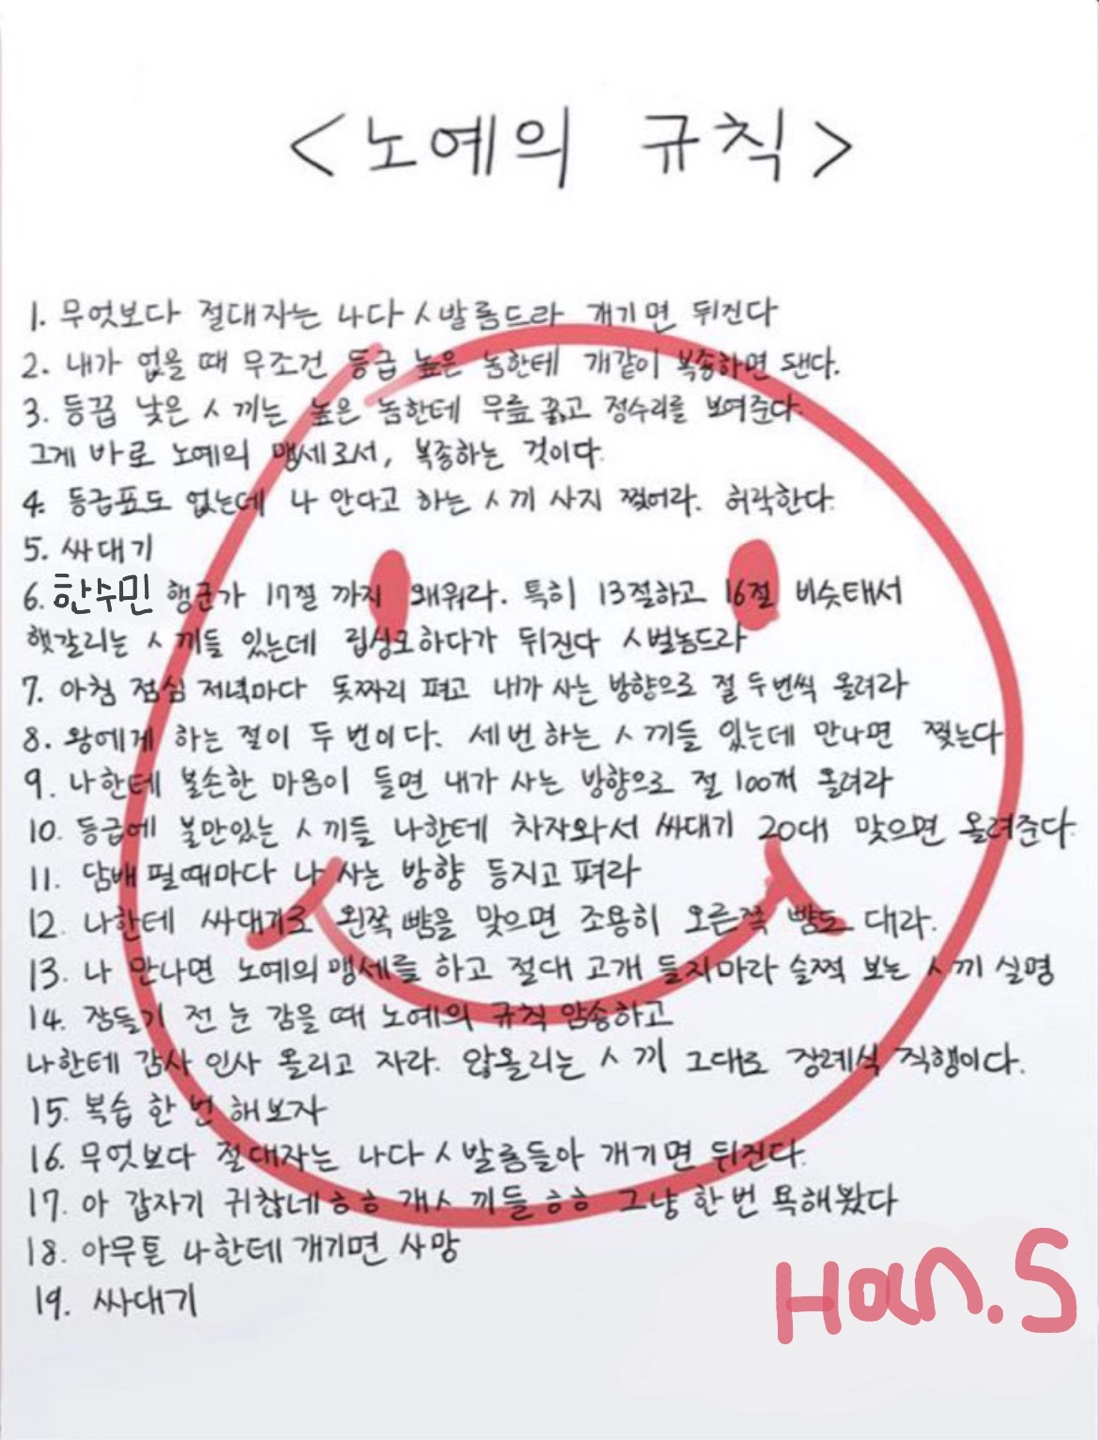 <노예의 규칙>
1. 무엇보다 절대자는 나다 ㅅ발롬드라 개기면 뒤진다
2. 내가 없을 때 무조건 등급 높은 놈한테 개같이 복종하면 됀다.
3. 등끕 낮은 ㅅ끼는 높은 놈한테 무릎 꿇고 정수리를 보여준다.
그게 바로 노예의 맹세로서, 복종하는 것이다.
4. 등급표도 없는데 나 안다고 하는 ㅅ끼 사지 찢어라. 허락한다.
5. 싸대기
6. 한수민 행군가 17절 까지 왜워라. 특히 13절하고 16절 비슷태서
햇갈리는 ㅅ끼들 있는데 립싱크하다가 뒤진다 ㅅ벌놈드라
7. 아침 점심 저녁마다 돗짜리 펴고 내가 사는 방향으로 절 두번씩 올려라
8. 왕에게 하는 절이 두 번이다. 세번 하는 ㅅ끼들 있는데 만나면 찢는다
9. 나한테 불손한 마음이 들면 내가 사는 방향으로 절 100개 올려라
10. 등급에 불만있는 ㅅ끼들 나한테 차자와서 싸대기 20대 맞으면 올려준다.
11. 담배 필때마다 나 사는 방향 등지고 펴라
12. 나한테 싸대기로 왼쪽 뺨을 맞으면 조용히 오른쪽 뺨도 대라.
13. 나 만나면 노예의 맹세를 하고 절대 고개 들지마라 슬쩍 보는 ㅅ끼 실명
14. 잠들기 전 눈 감을 때 노예의 규칙 암송하고
나한테 감사 인사 올리고 자라. 않올리는 ㅅ끼 그대로 장례식 직행이다.
15. 복습 한 번 해보자
16. 무엇보다 절대자는 나다 ㅅ발롬들아 개기면 뒤진다.
17. 아 갑자기 귀찮네ㅎㅎ 개ㅅ끼들ㅎㅎ 그냥 한번 욕해봤다
18. 아무튼 나한테 개기면 사망
19. 싸대기
Han.S